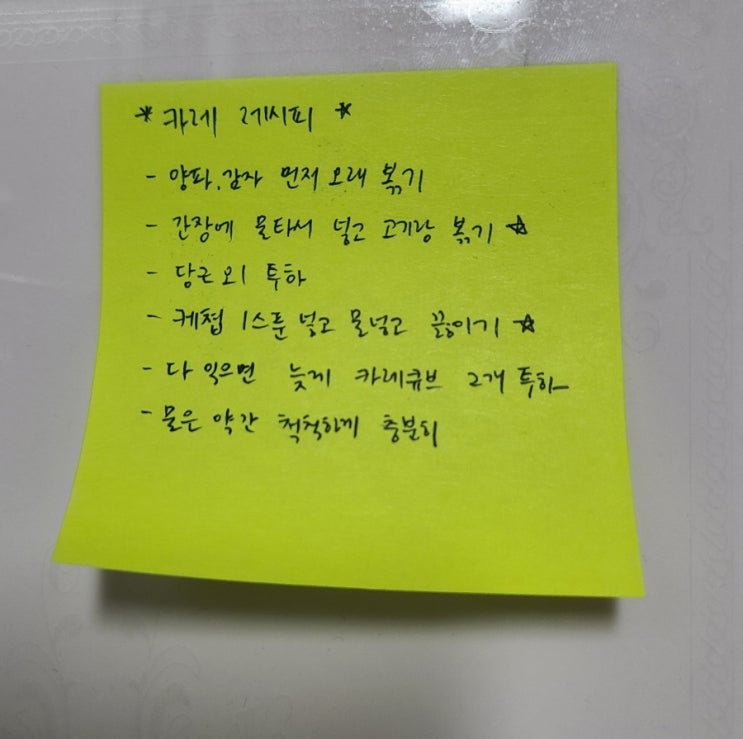 * 카레 레시피 *
- 양파, 감자 먼저 오래 볶기
- 간장에 물타서 넣고 고기랑 볶기 ☆
- 당근 외 투하
- 케첩 1스푼 넣고 물넣고 끓이기 ☆
- 다 익으면 늦게 카레큐브 2개 투하
- 물은 약간 척척하게 충분히